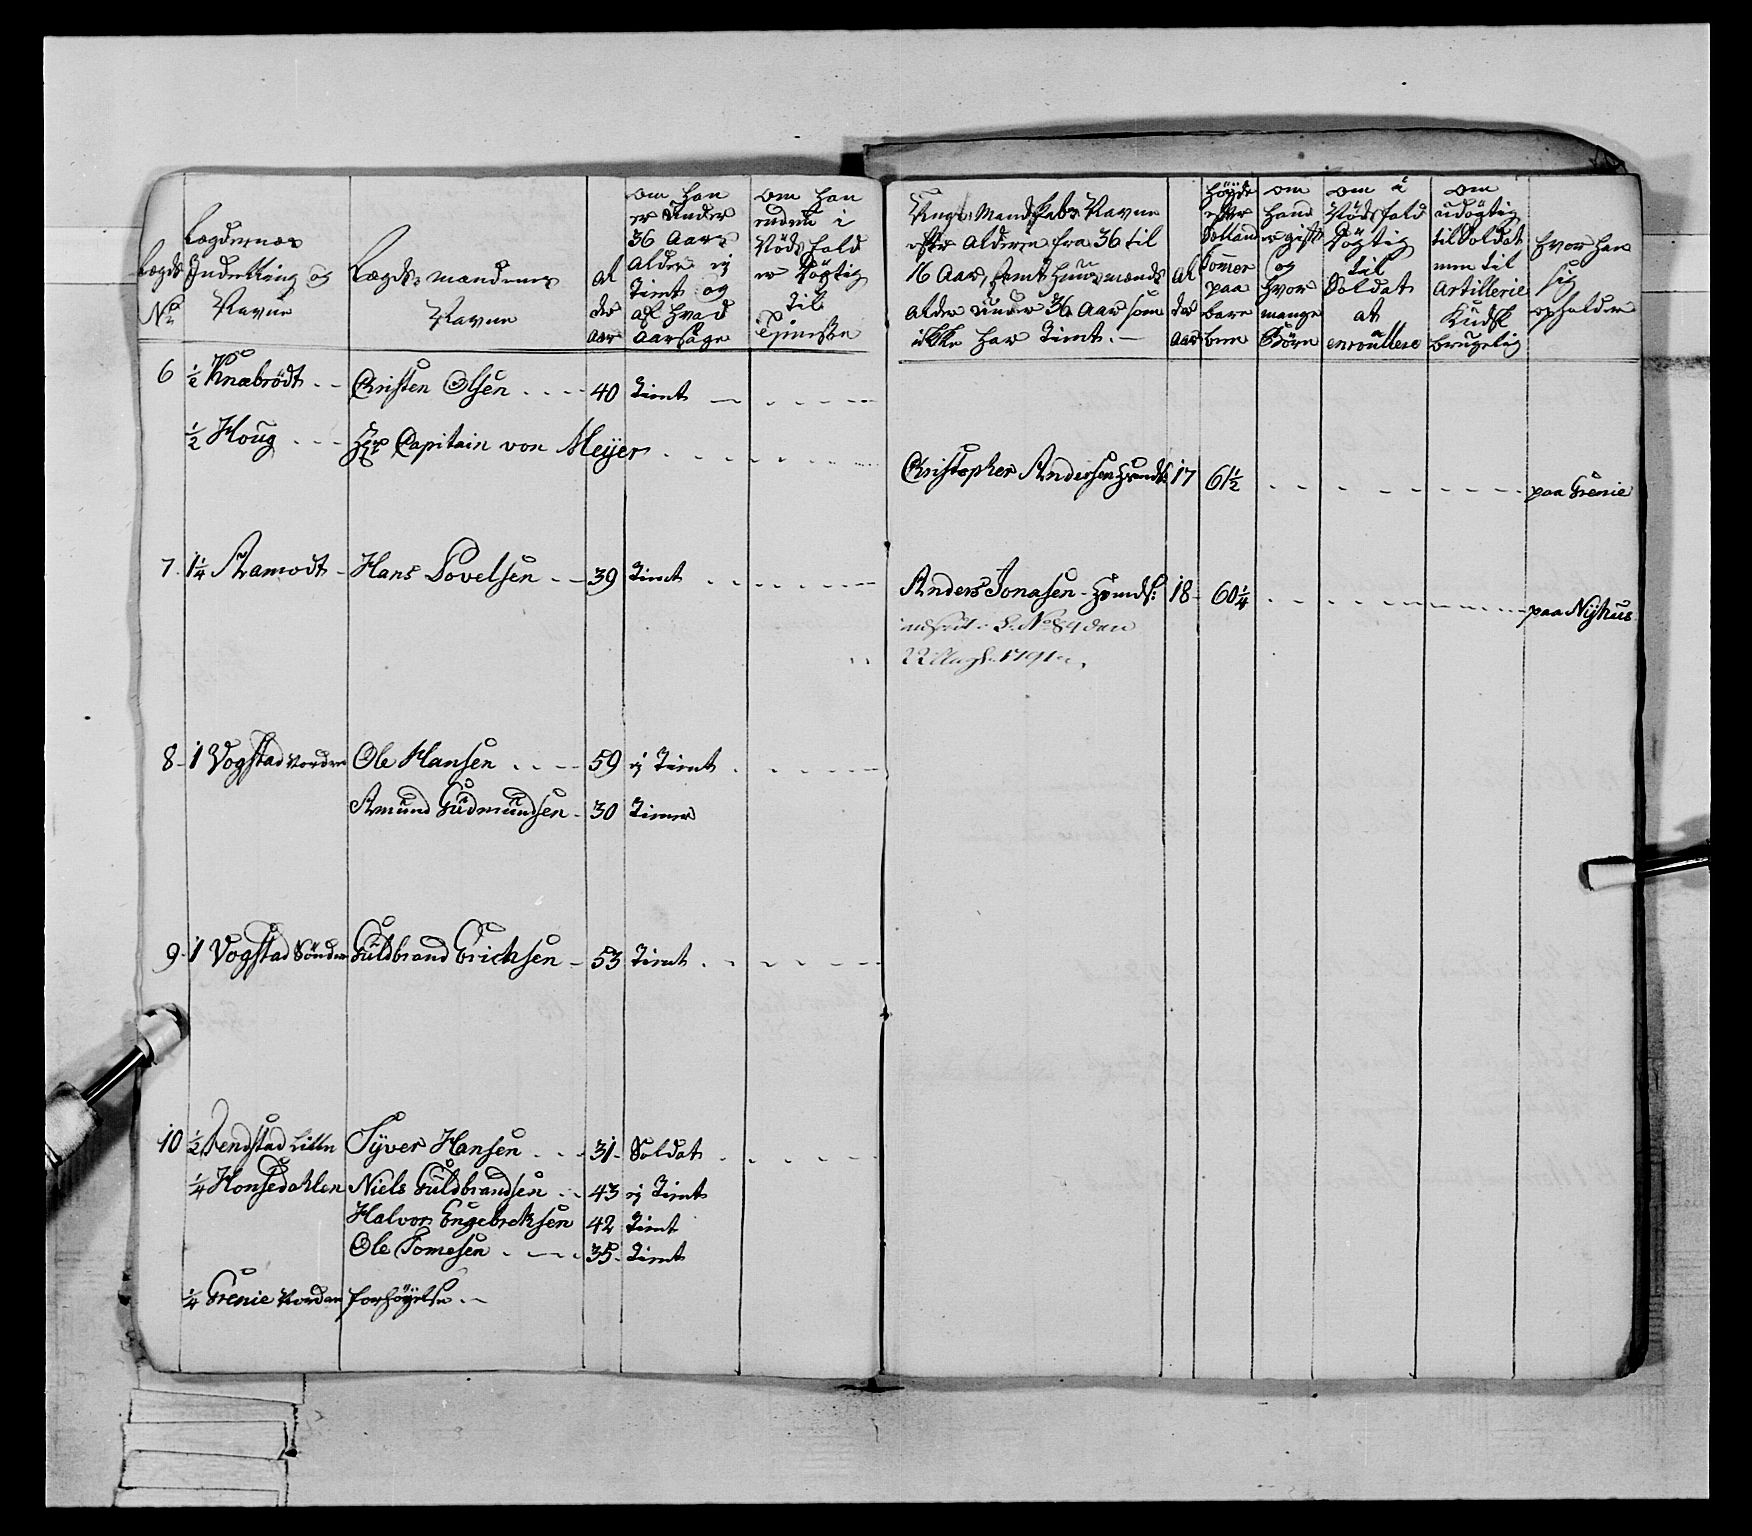 Lægds No
Lægdernes Inddeling og Navne
Lægds-mændenes Navne
Alder aar
om han er under 36 Aars alder ej Tient og af hvad aarsage
om han endnu i Nødsfald er Dögtig til Tjeneste
Unge Mandskabs Navne efter alderen fra 36 til 16 Aar, samt huusmænds alder under 36 Aar som ikke har Tient.
Alder Aar
höyde efter Solland Tomer paa bare been
om hand er gift og hvor mange Börn
om i Nödsfald Dögtig til Soldat at enroullere
om udögtig til Soldat men til Artillerie Kudsk brugelig
hvor han sig opholder
6 ½ Knabrödt - - Christen Olsen - - - 40 Tient
½ Houg - - - Hr Capitain von Meyer
Christopher Andersen 17 61½ paa Grenie
7. 1¼ Aamodt - Hans Povelsen - - 39 Tient
Anders Jonasen - 18 - 60¼ paa Nyhus
No 84 den
1791
8 - 1 Vogstad Nordre Ole Hansen - - - 59 ej Tient
Amund Gudmundsen - 30 Tiener
9 - 1 Vogstad Sönder Guldbrand Erichsen - 53 Tient
10 ½ Jendstad Litln Syver Hansen - - - 31 - Soldat
¼ Honsedahlen Niels Guldbrandsen - - 43 ej Tient
Halvor Engebretsen 42 Tient
Ole Tomesen - - - 35 - Tient
¼ Grenie Nordan forhöyelse. -